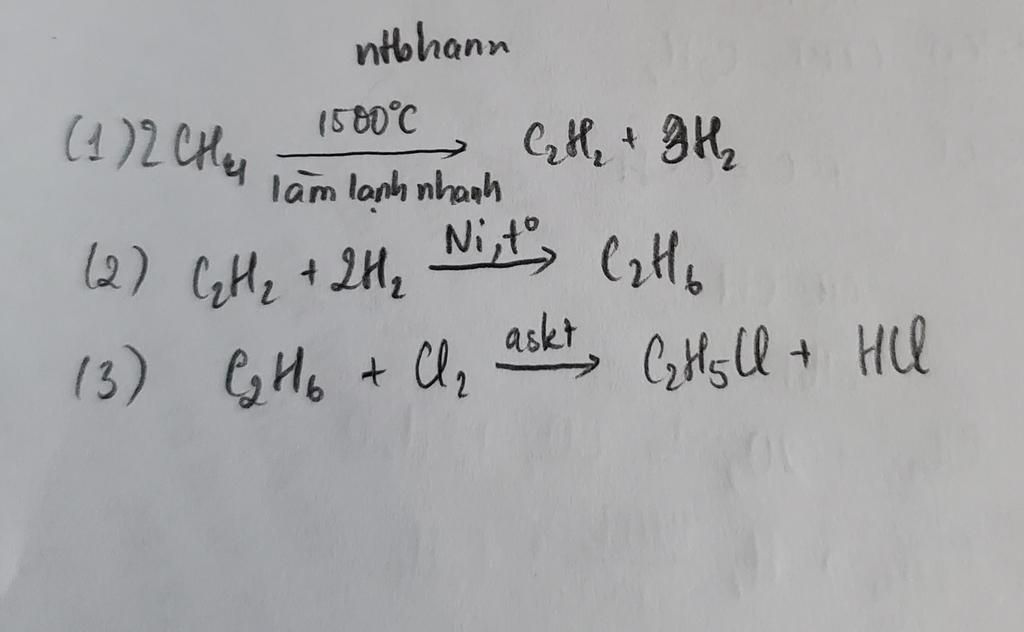 ntbhann
(1) 2CH₄ 1500°C làm lạnh nhanh → C₂H₂ + 3H₂
(2) C₂H₂ + 2H₂ Ni, t° → C₂H₆
(3) C₂H₆ + Cl₂ askt → C₂H₅Cl + HCl